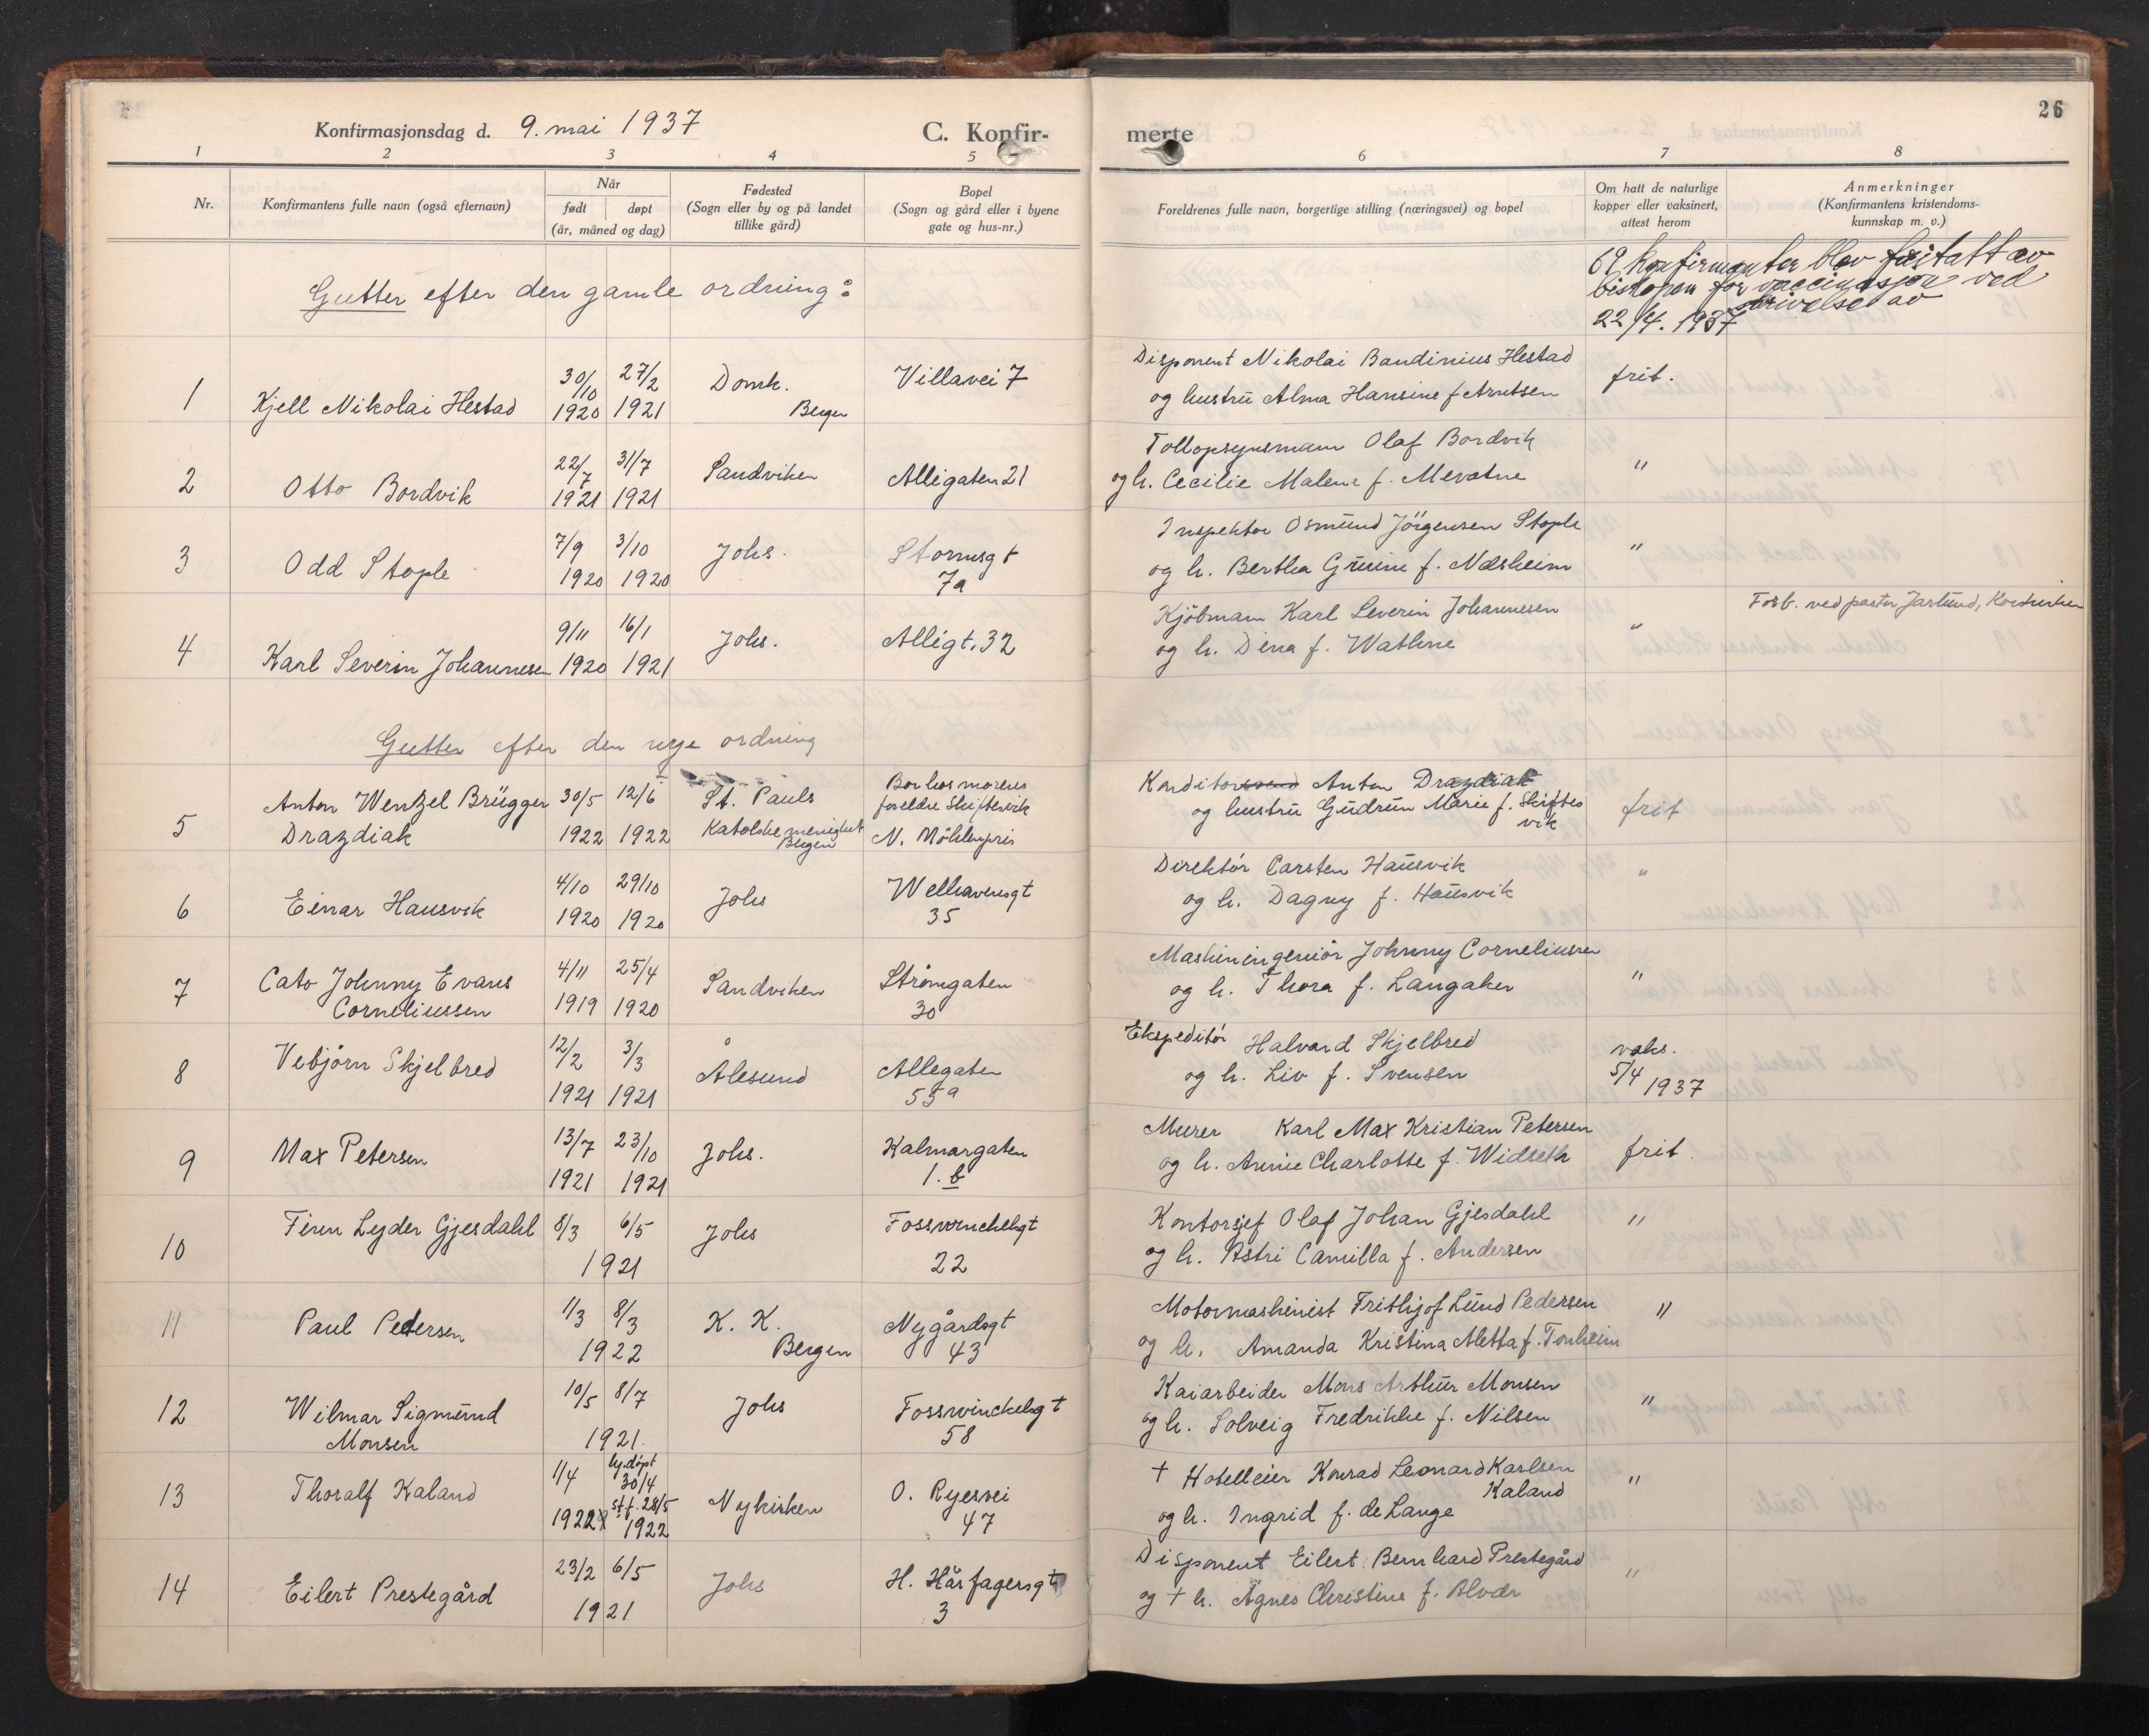 26
Konfirmasjonsdag d. 9. mai 1937
C. Konfir-
merte
1 2 3 4 5 6 7 8
Nr.
Konfirmantens fulle navn (også efternavn)
Når
født døpt
(år, måned og dag)
Fødested
(Sogn eller by og på landet
tillike gård)
Bopel
(Sogn og gård eller i byene
gate og hus-nr.)
Foreldrenes fulle navn, borgerlige stilling (næringsvei) og bopel
Om hatt de naturlige
kopper eller vaksinert,
attest herom
Anmerkninger
(Konfirmantens kristendoms-
kunnskap m. v.)
69 konfirmanter blev fritatt av
biskopen for vaccinasjon ved
skrivelse av
22/4. 1937
Gutter efter den gamle ordning:
1 Kjell Nikolai Hestad 30/10 1920 27/2 1921 Domk. Bergen Villavei 7
Disponent Nikolai Baudinius Hestad
og hustru Alma Hansine f Arntsen
frit.
2 Otto Bordvik 22/7 1921 31/7 1921 Sandviken Allégaten 21
Tollopsynsmann Olaf Bordvik
og h. Cecilie Malene f. Mevatne
"
3 Odd Stople 7/9 1920 3/10 1920 Johs. Stormsgt 7a
Inspektor Osmund Jörgensen Stople
og h. Bertha Grusine f. Næsheim
"
4 Karl Severin Johannesen 9/11 1920 16/1 1921 Johs. Allégt. 32
Kjöbmann Karl Severin Johannesen
og h. Dina f. Wathne
"
Forb. ved pastor Jarlund, Korskirken
Gutter efter den nye ordning
5 Anton Wentzel Brügger
Drazdiak
30/5 1922 12/6 1922
St. Pauls
Katolske menighet
Bergen
Bor hos morens
foreldre Skiftesvik
N. Möhlenpris
Konditorsvend Anton Drazdiak
og hustru Gudrun Marie f. Skiftes
vik
frit
6 Einar Hausvik 4/10 1920 29/10 1920 Johs Welhavensgt 35
Direktör Carsten Hausvik
og h. Dagny f. Hausvik
"
7 Cato Johnny Evans
Corneliussen
4/11 1919 25/4 1920 Sandviken Strömgaten 30
Maskiningeniör Johnny Corneliussen
og h. Thora f. Langaker
"
8 Vebjörn Skjelbred 12/2 1921 3/3 1921 Ålesund Allegaten 55a
Ekspeditör Halvard Skjelbred
og h. Liv f. Svensen
vaks.
5/4 1937
9 Max Petersen 13/7 1921 23/10 1921 Johs. Kalmargaten 1. b
Murer Karl Max Kristian Petersen
og h. Annie Charlotte f. Widseth
frit.
10 Finn Lyder Gjesdahl 8/3 6/5 1921 Johs Fosswinckelsgt 22
Kontorsjef Olaf Johan Gjesdahl
og h. Astri Camilla f. Andersen
"
11 Paul Pedersen 1/3 8/3 1922 K. K. Bergen Nygårdsgt 43
Motormaskinist Frithjof Lund Pedersen
og h. Amanda Kristina Aletta f. Tonheim
"
12 Wilmar Sigmund
Monsen
10/5 8/7 1921 Johs Fosswinckelsgt 58
Kaiarbeider Mons Arthur Monsen
og h. Solveig Fredrikke f. Nilsen
"
13 Thoralf Kaland 1/4 1922 hj. döpt 30/4 st. f. 28/5 1922 Nykirken O. Ryesvei 47
† Hotelleier Konrad Leonard Karlsen
Kaland
og h. Ingrid f. de Lange
"
14 Eilert Prestegård 23/2 6/5 1921 Johs H. Hårfagersgt 3
Disponent Eilert Bernhard Prestegård
og † h. Agnes Christine f. Alvær
"